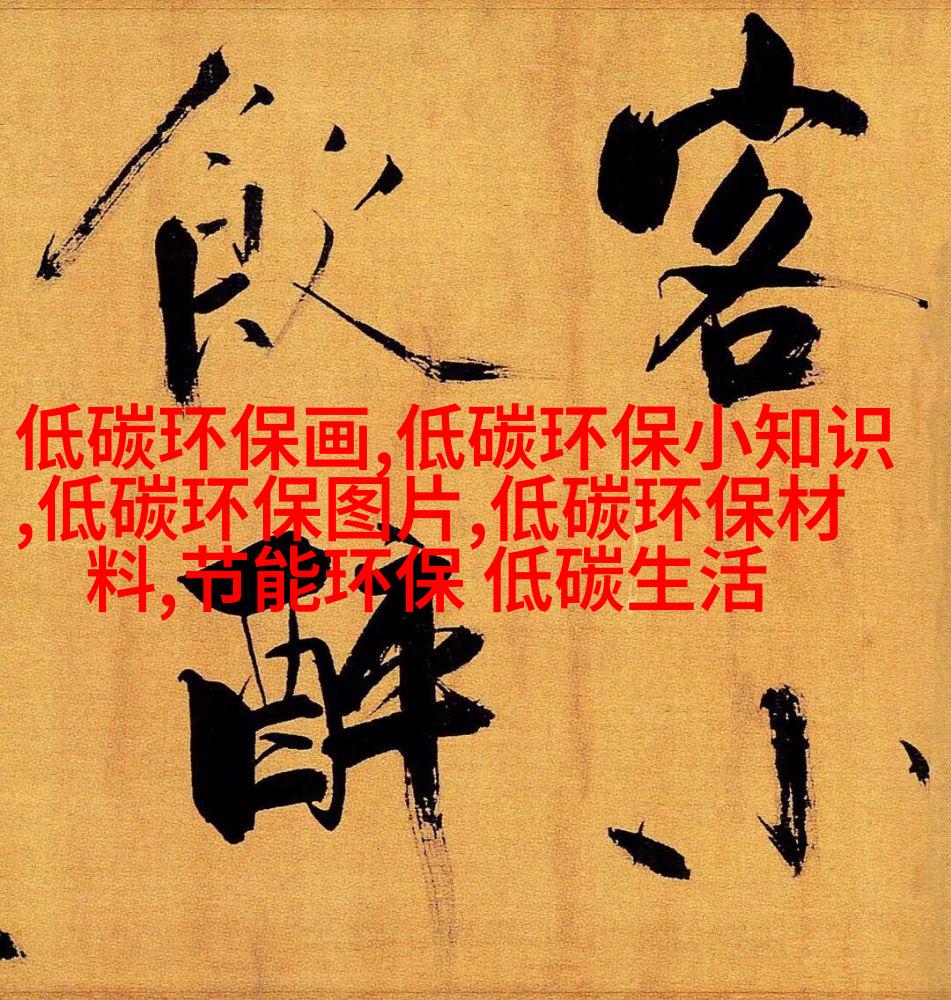 客小
飲醉
低碳环保画,低碳环保小知识
,低碳环保图片,低碳环保材
料,节能环保 低碳生活